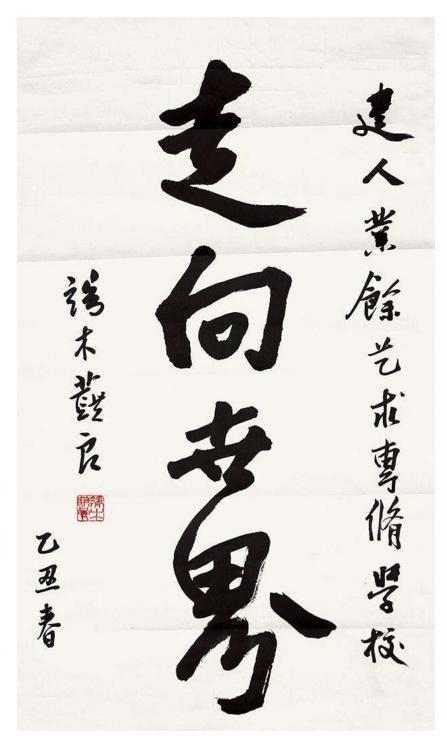 建人業餘艺术專脩學校
走向世界
端木蕻良
乙丑春